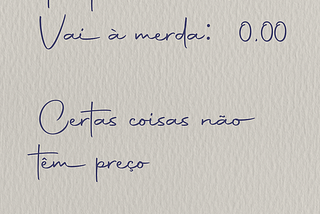 Vai à merda: 0.00
Certas coisas não
têm preço